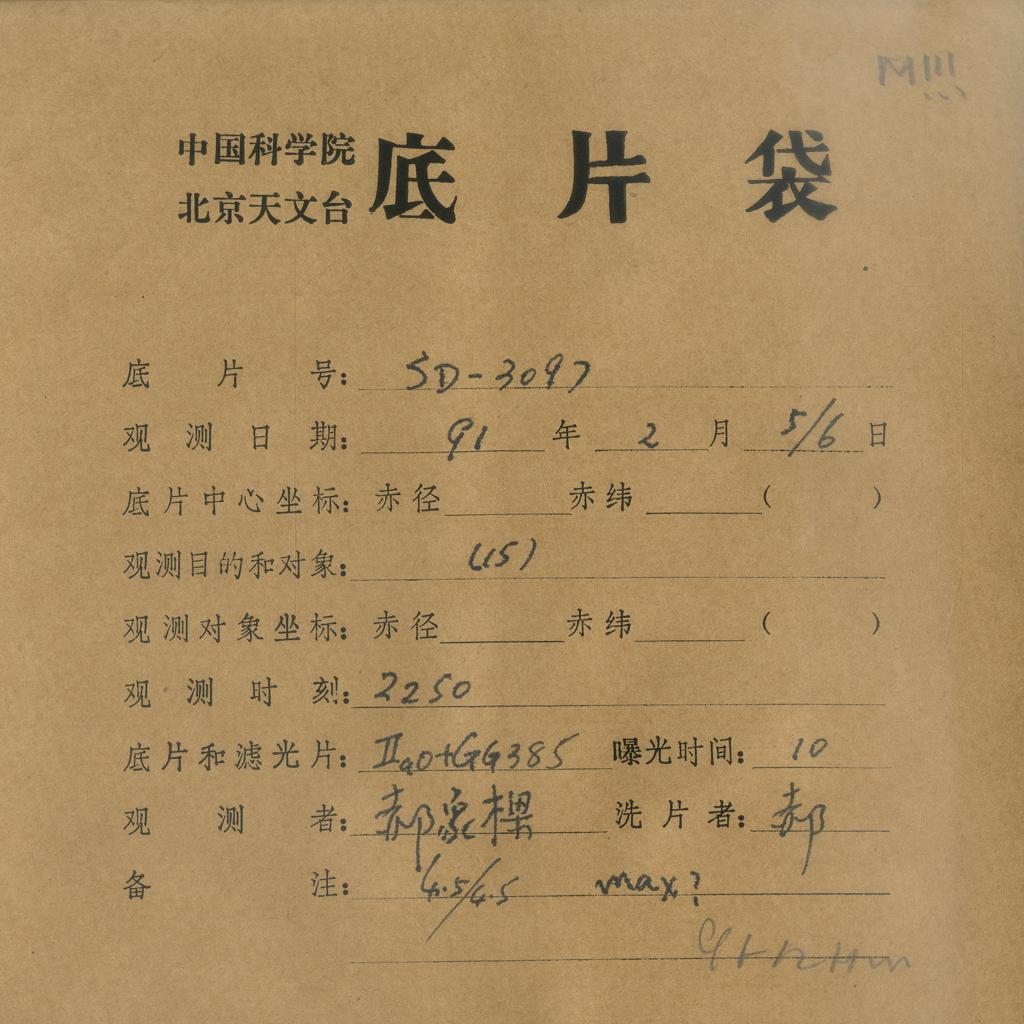 中国科学院
北京天文台 底片袋
底片号：SD-3097
观测日期：91年2月5/6日
底片中心坐标：赤径 赤纬 （ ）
观测目的和对象：(15)
观测对象坐标：赤径 赤纬 （ ）
观测时刻：2250
底片和滤光片：IIaO+GG385 曝光时间：10
观测者：郝象樑 洗片者：郝
备注：4.5/4.5 max?